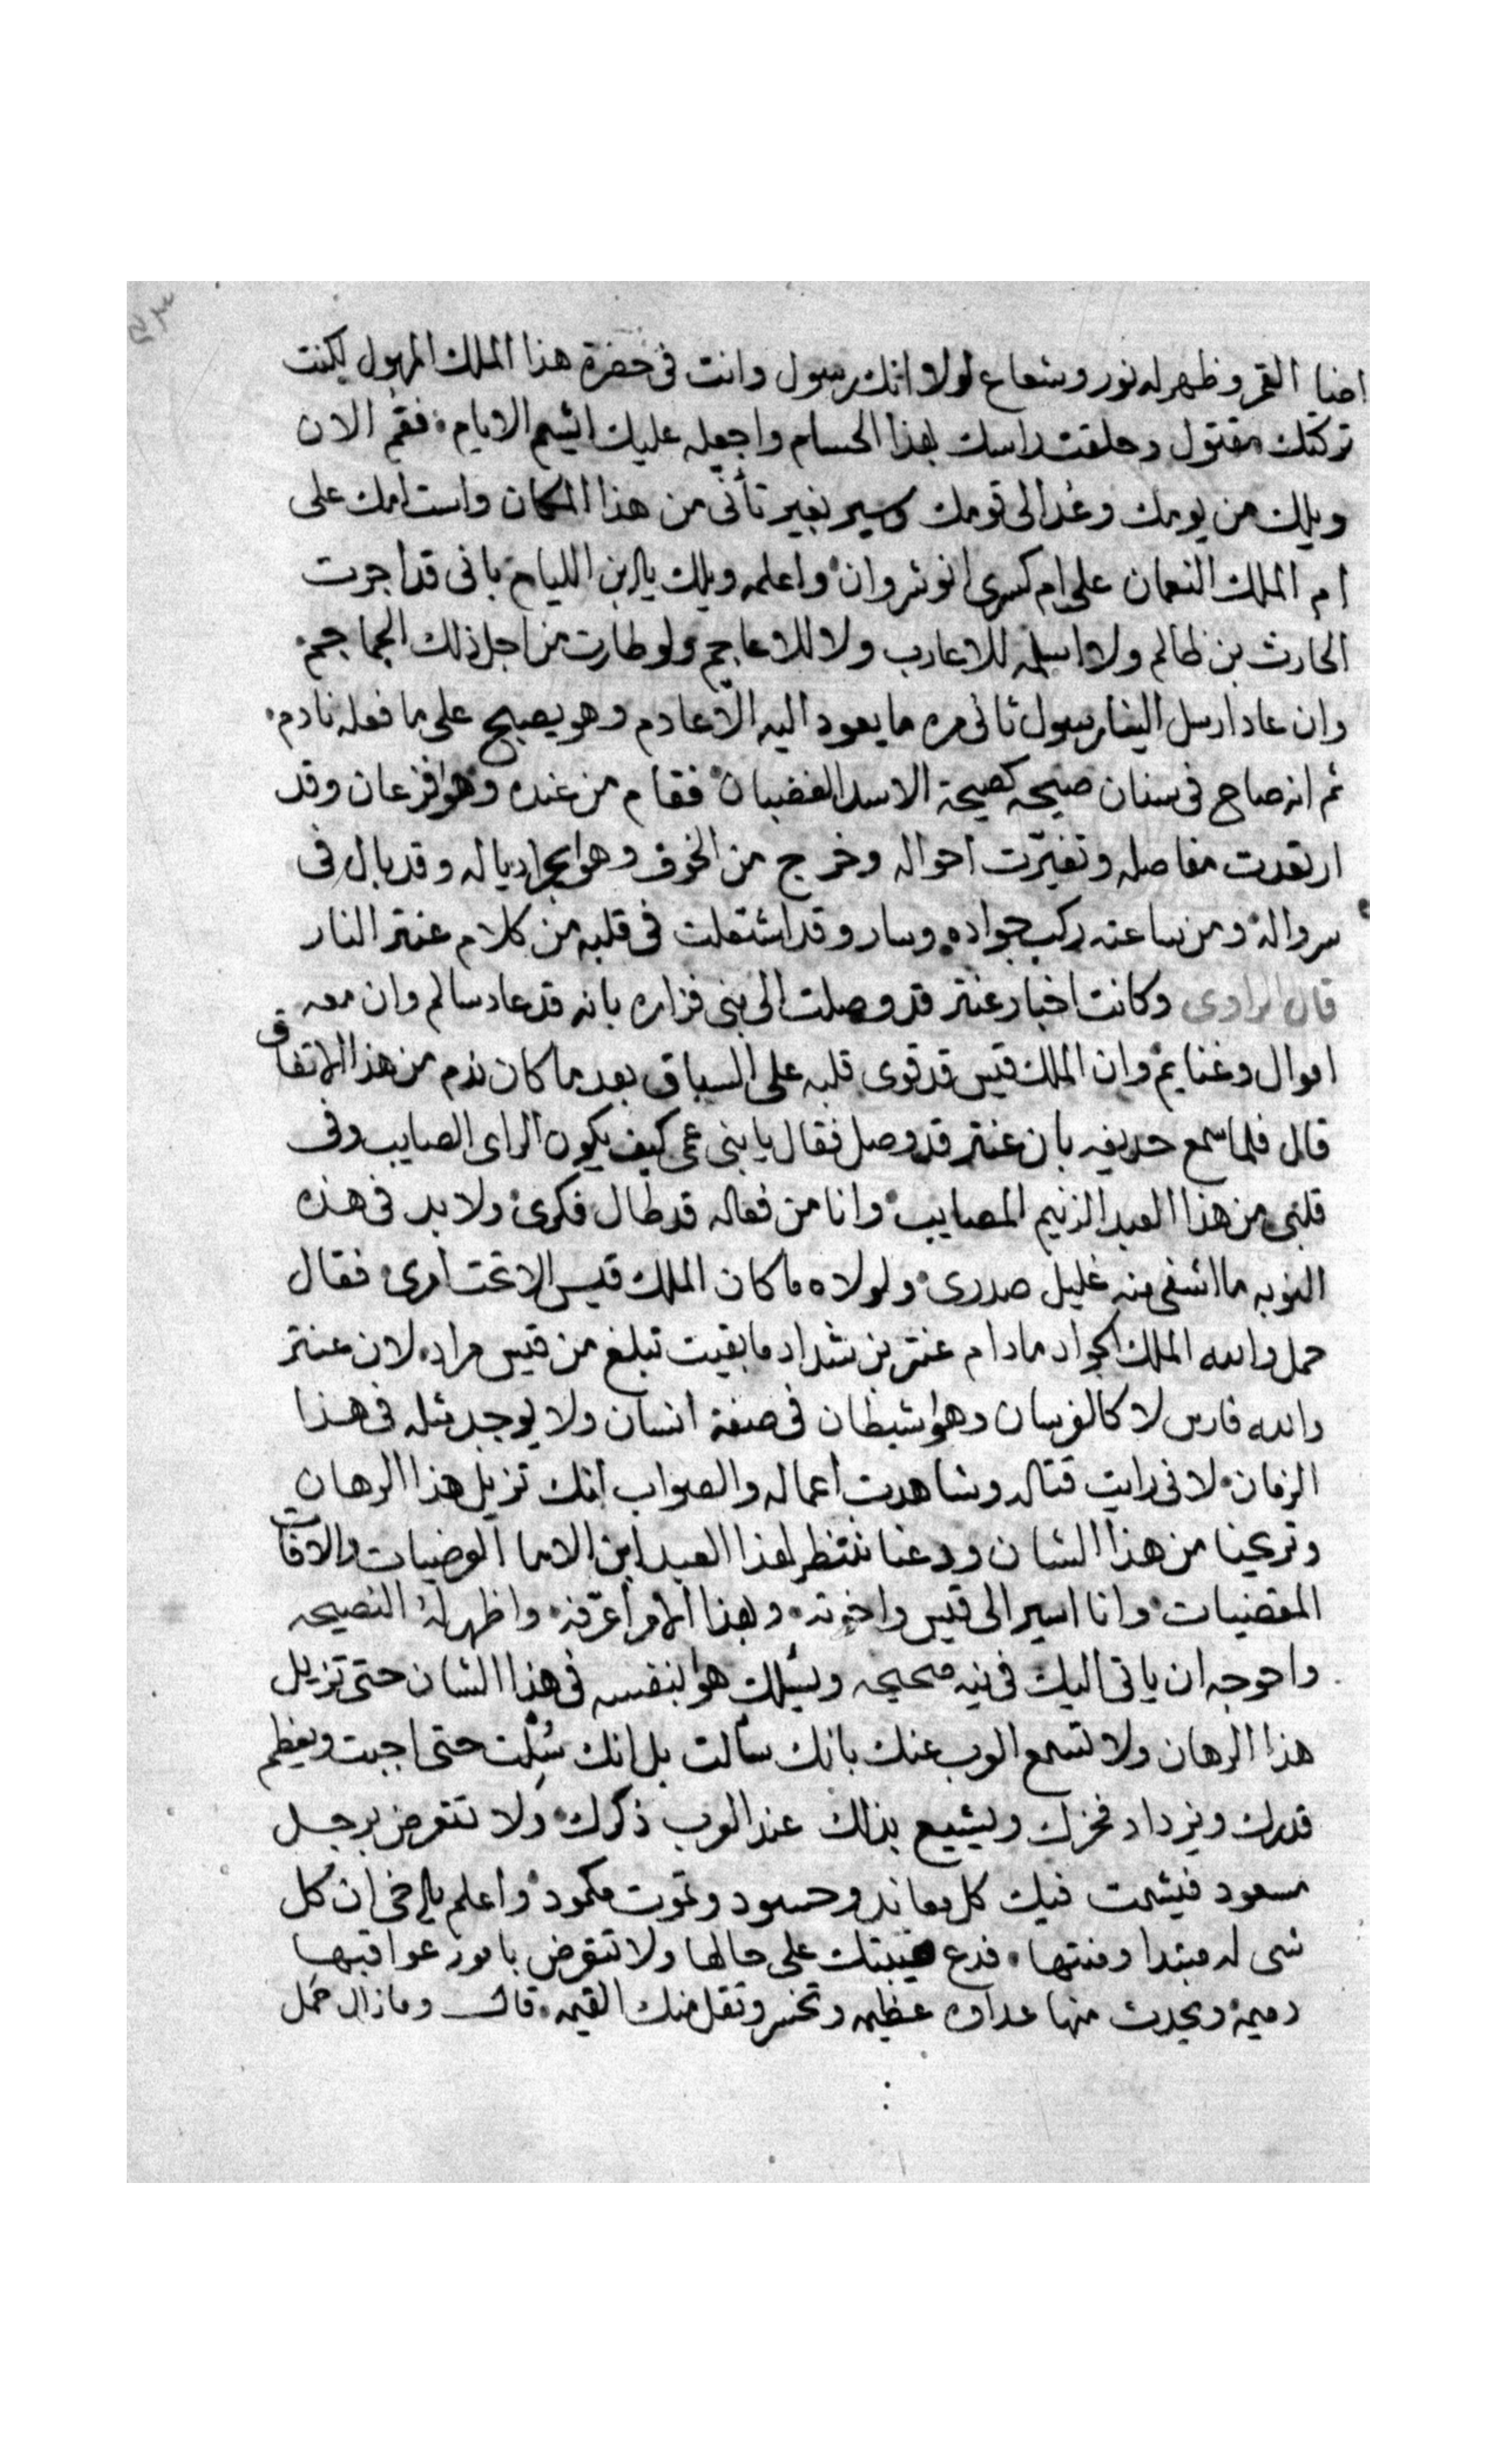 اضا القمر وظهر له نور وشعاع لولا انك رسول وانت فى حضرة هذا الملك المهول لكنت
تركتك مقتول وحلقت راسك بهذا الحسام واجعله عليك اشيم الايام فقم الان
ويلك من يومك وعُد الى قومك وسير بغير تأنّى من هذا المكان واست امك على
ام الملك النعمان على ام كسرى انوشروان واعلمه ويلك يا ابن الليام بانى قد اجرت
الحارث بن ظالم ولا اسلمه للاعارب ولا للاعاجم ولو طارت من اجل ذلك الجماجم
وان عاد ارسل الينا رسول ثانى مره ما يعود اليه الا عادم وهو يصبح على ما فعله نادم
ثم انه صاح فى سنان صيحه كصيحة الاسد الغضبان فقام من عنده وهوا فزعان وقد
ارتعدت مفاصله وتغيّرت احواله وخرج من الخوف وهوا يجر ادياله وقد بال فى
سرواله ومن ساعته ركب جواده وسار وقد اشتعلت فى قلبه من كلام عنتر النار
قال الراوى وكانت اخبار عنتر قد وصلت الى بنى فزاره بانه قد عاد سالم وان معه
اموال وغنايم وان الملك قيس قد قوى قلبه على السباق بعد ما كان ندم من هذا الاتفاق
قال فلما سمع حديفه بان عنتر قد وصل فقال يا بنى عمى كيف يكون الراى الصايب وفى
قلبى من هذا العبد الزنيم المصايب وانا من فعاله قد طال فكرى ولا بد فى هذه
النوبه ما اشفى منه غليل صدرى ولولاه ما كان الملك قيس الا تحت امرى فقال
حمل والله الملك الجواد مادام عنتر بن شداد ما بقيت تبلغ من قيس مراد لان عنتر
والله فارس لا كالفرسان وهوا شيطان فى صفة انسان ولا يوجد مثله فى هذا
الزمان لانى رايت قتاله وشاهدت اعماله والصواب انك تزيل هذا الرهان
وتريحنا من هذا الشان ودعنا ننتظر لهذا العبد ابن الاما الوضيات والافات
المقضيات وانا اسير الى قيس واخوته وبهذا الامر أعرّفه واظهر له النصيحه
واحوجه ان ياتى اليك فى نيه صحيحه ويسئلك هوا بنفسه فى هذا الشان حتى تزيل
هذا الرهان ولا تسمع العرب عنك بانك سألت بل انك سُئِلت حتى اجبت ويعظم
قدرك ويزداد فخرك ويشيع بذلك عند العرب ذكرك ولا تتعرض برجل
مسعود فيشمت فيك كل معاند وحسود وتموت مكمود واعلم يا اخى ان كل
شى له مبتدا ومنتها فدع هيبتك على حالها ولا تتعرض بامور عواقبها
دميمه ويحدث منها عداوه عظيمه وتخسر وتقل منك القيمه قال ومازال حمل